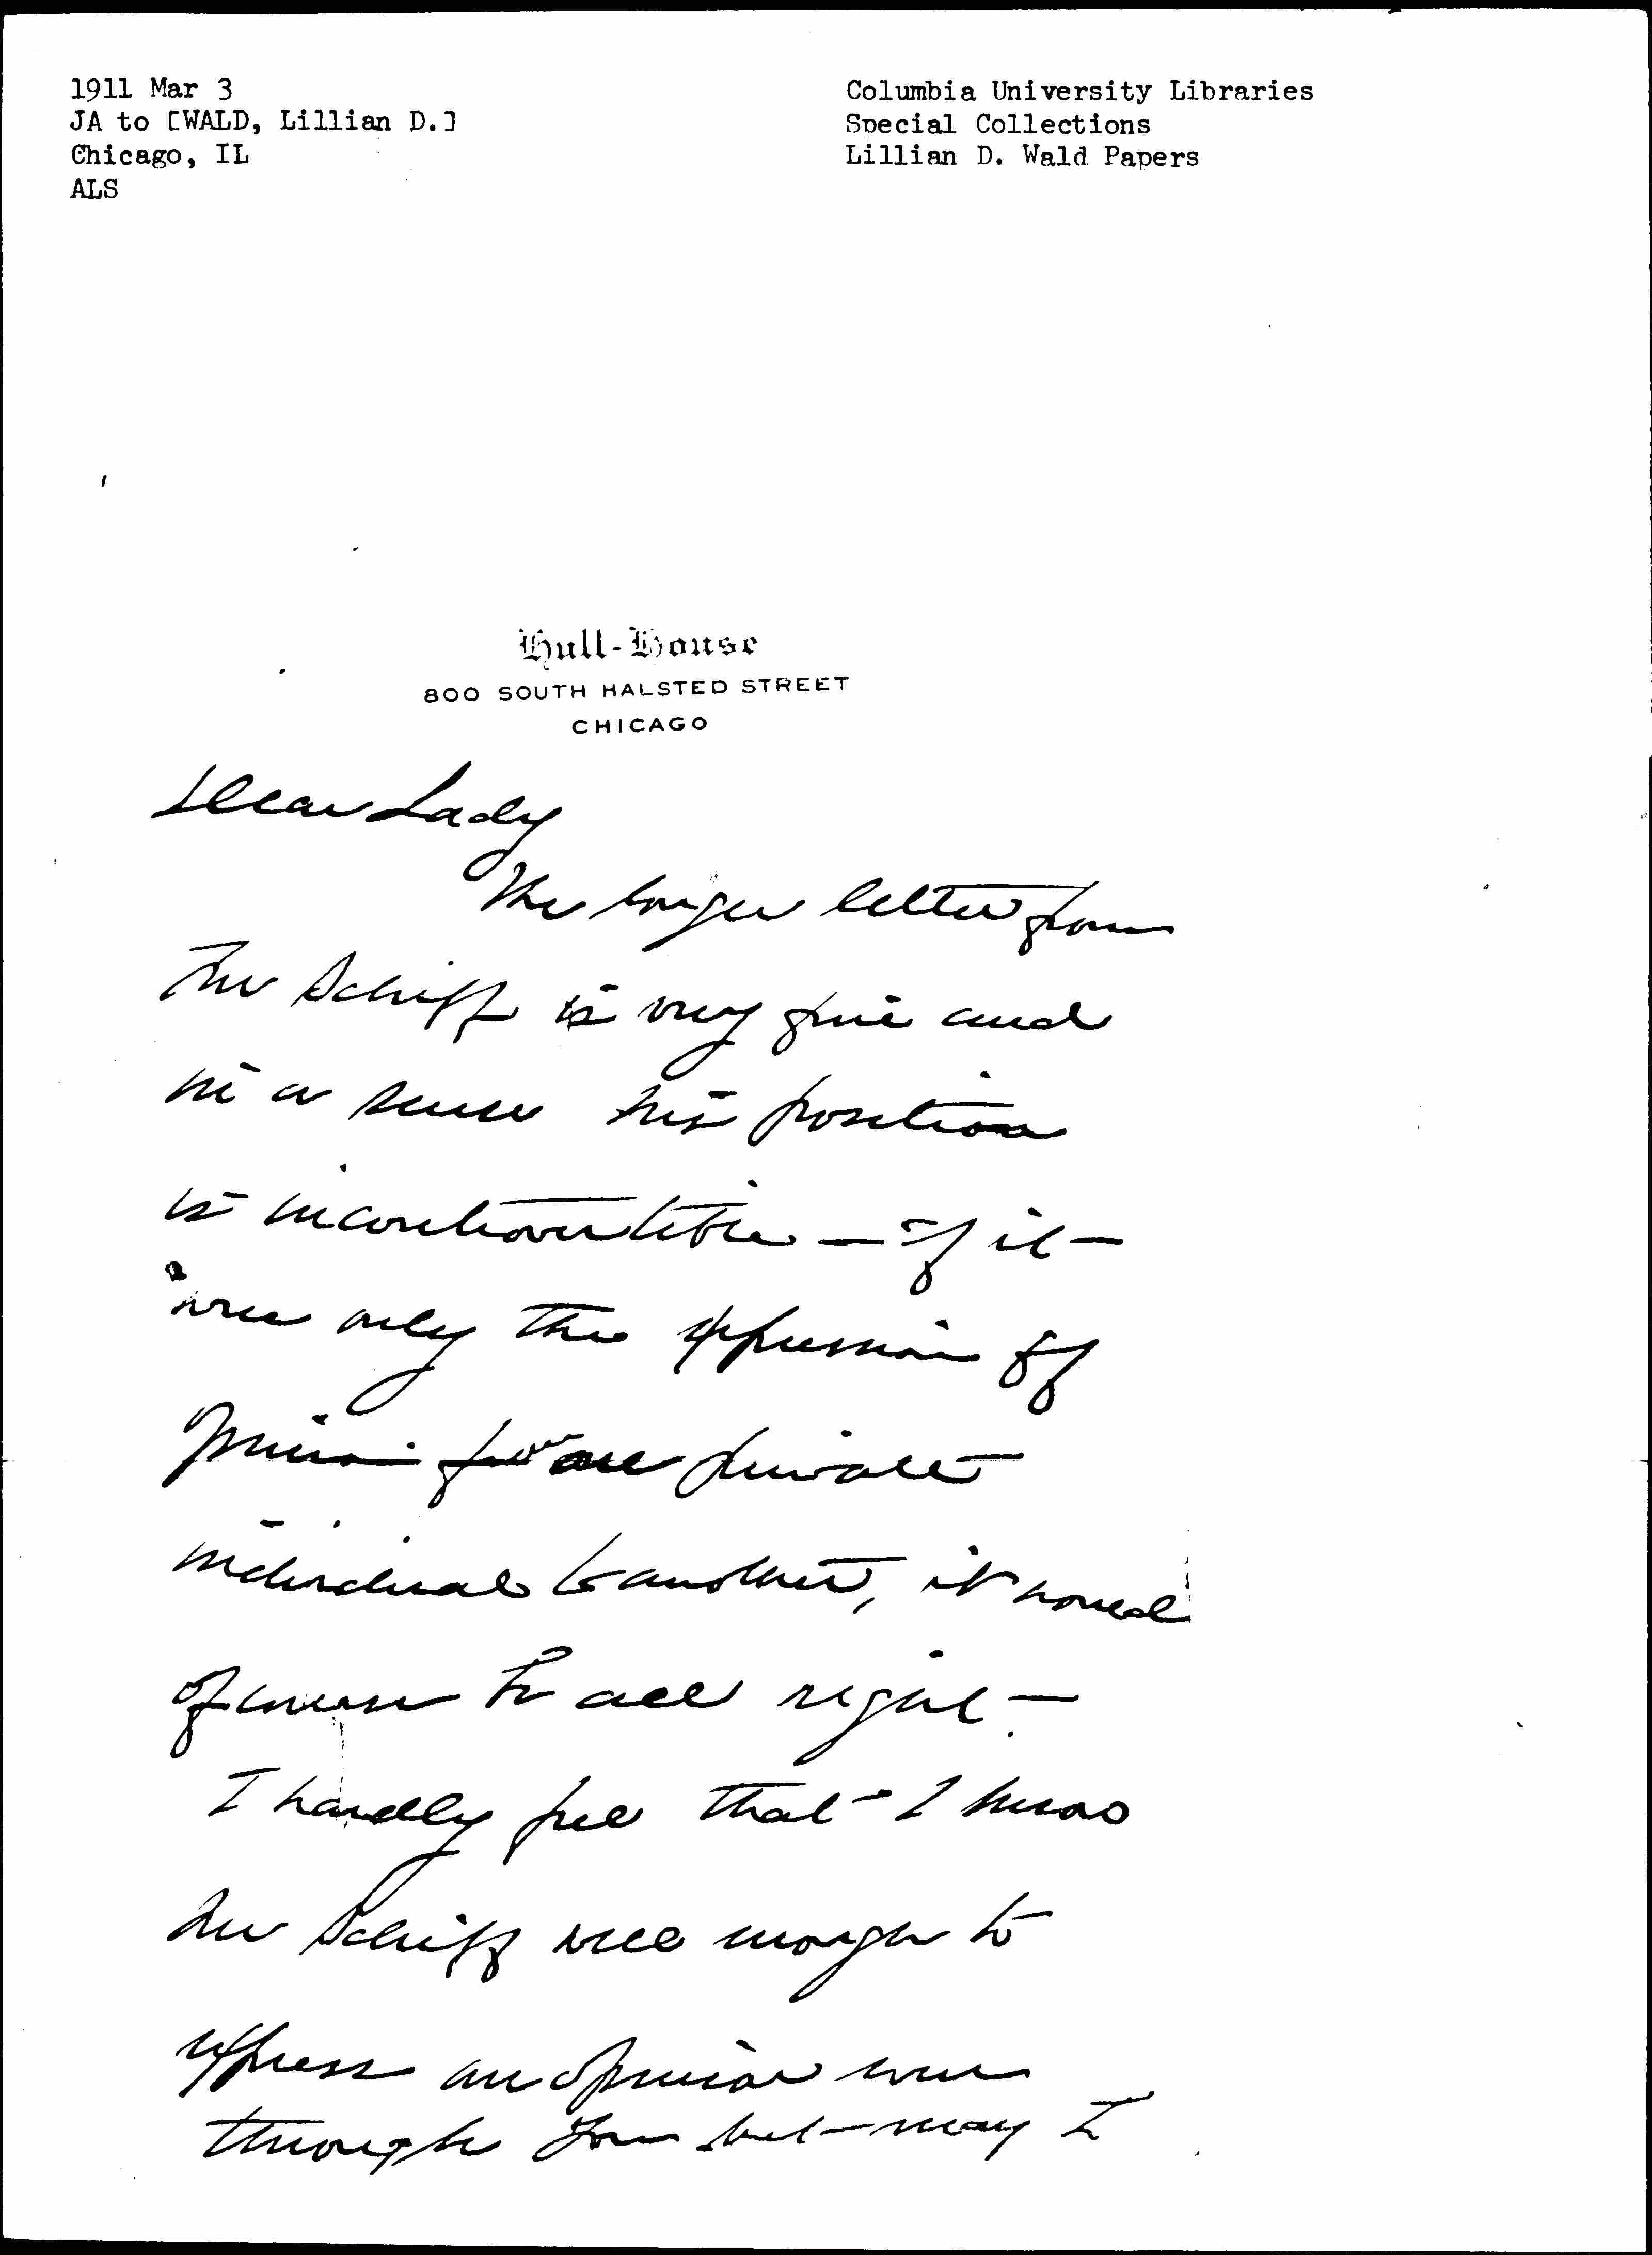 1911 Mar 3
JA to [WALD, Lillian D.]
Chicago, IL
ALS
Columbia University Libraries
Special Collections
Lillian D. Wald Papers
Hull-House
800 SOUTH HALSTED STREET
CHICAGO
Dear Lady
The longer letter from
Mr Schiff is very fine and
in a sense his position
is incontrovertible — if it
were only the expression of
opinion from one private
individual to another, it would
of course be all right —
I hardly feel that I know
Mr Schiff well enough to
express an opinion even
through you but may I